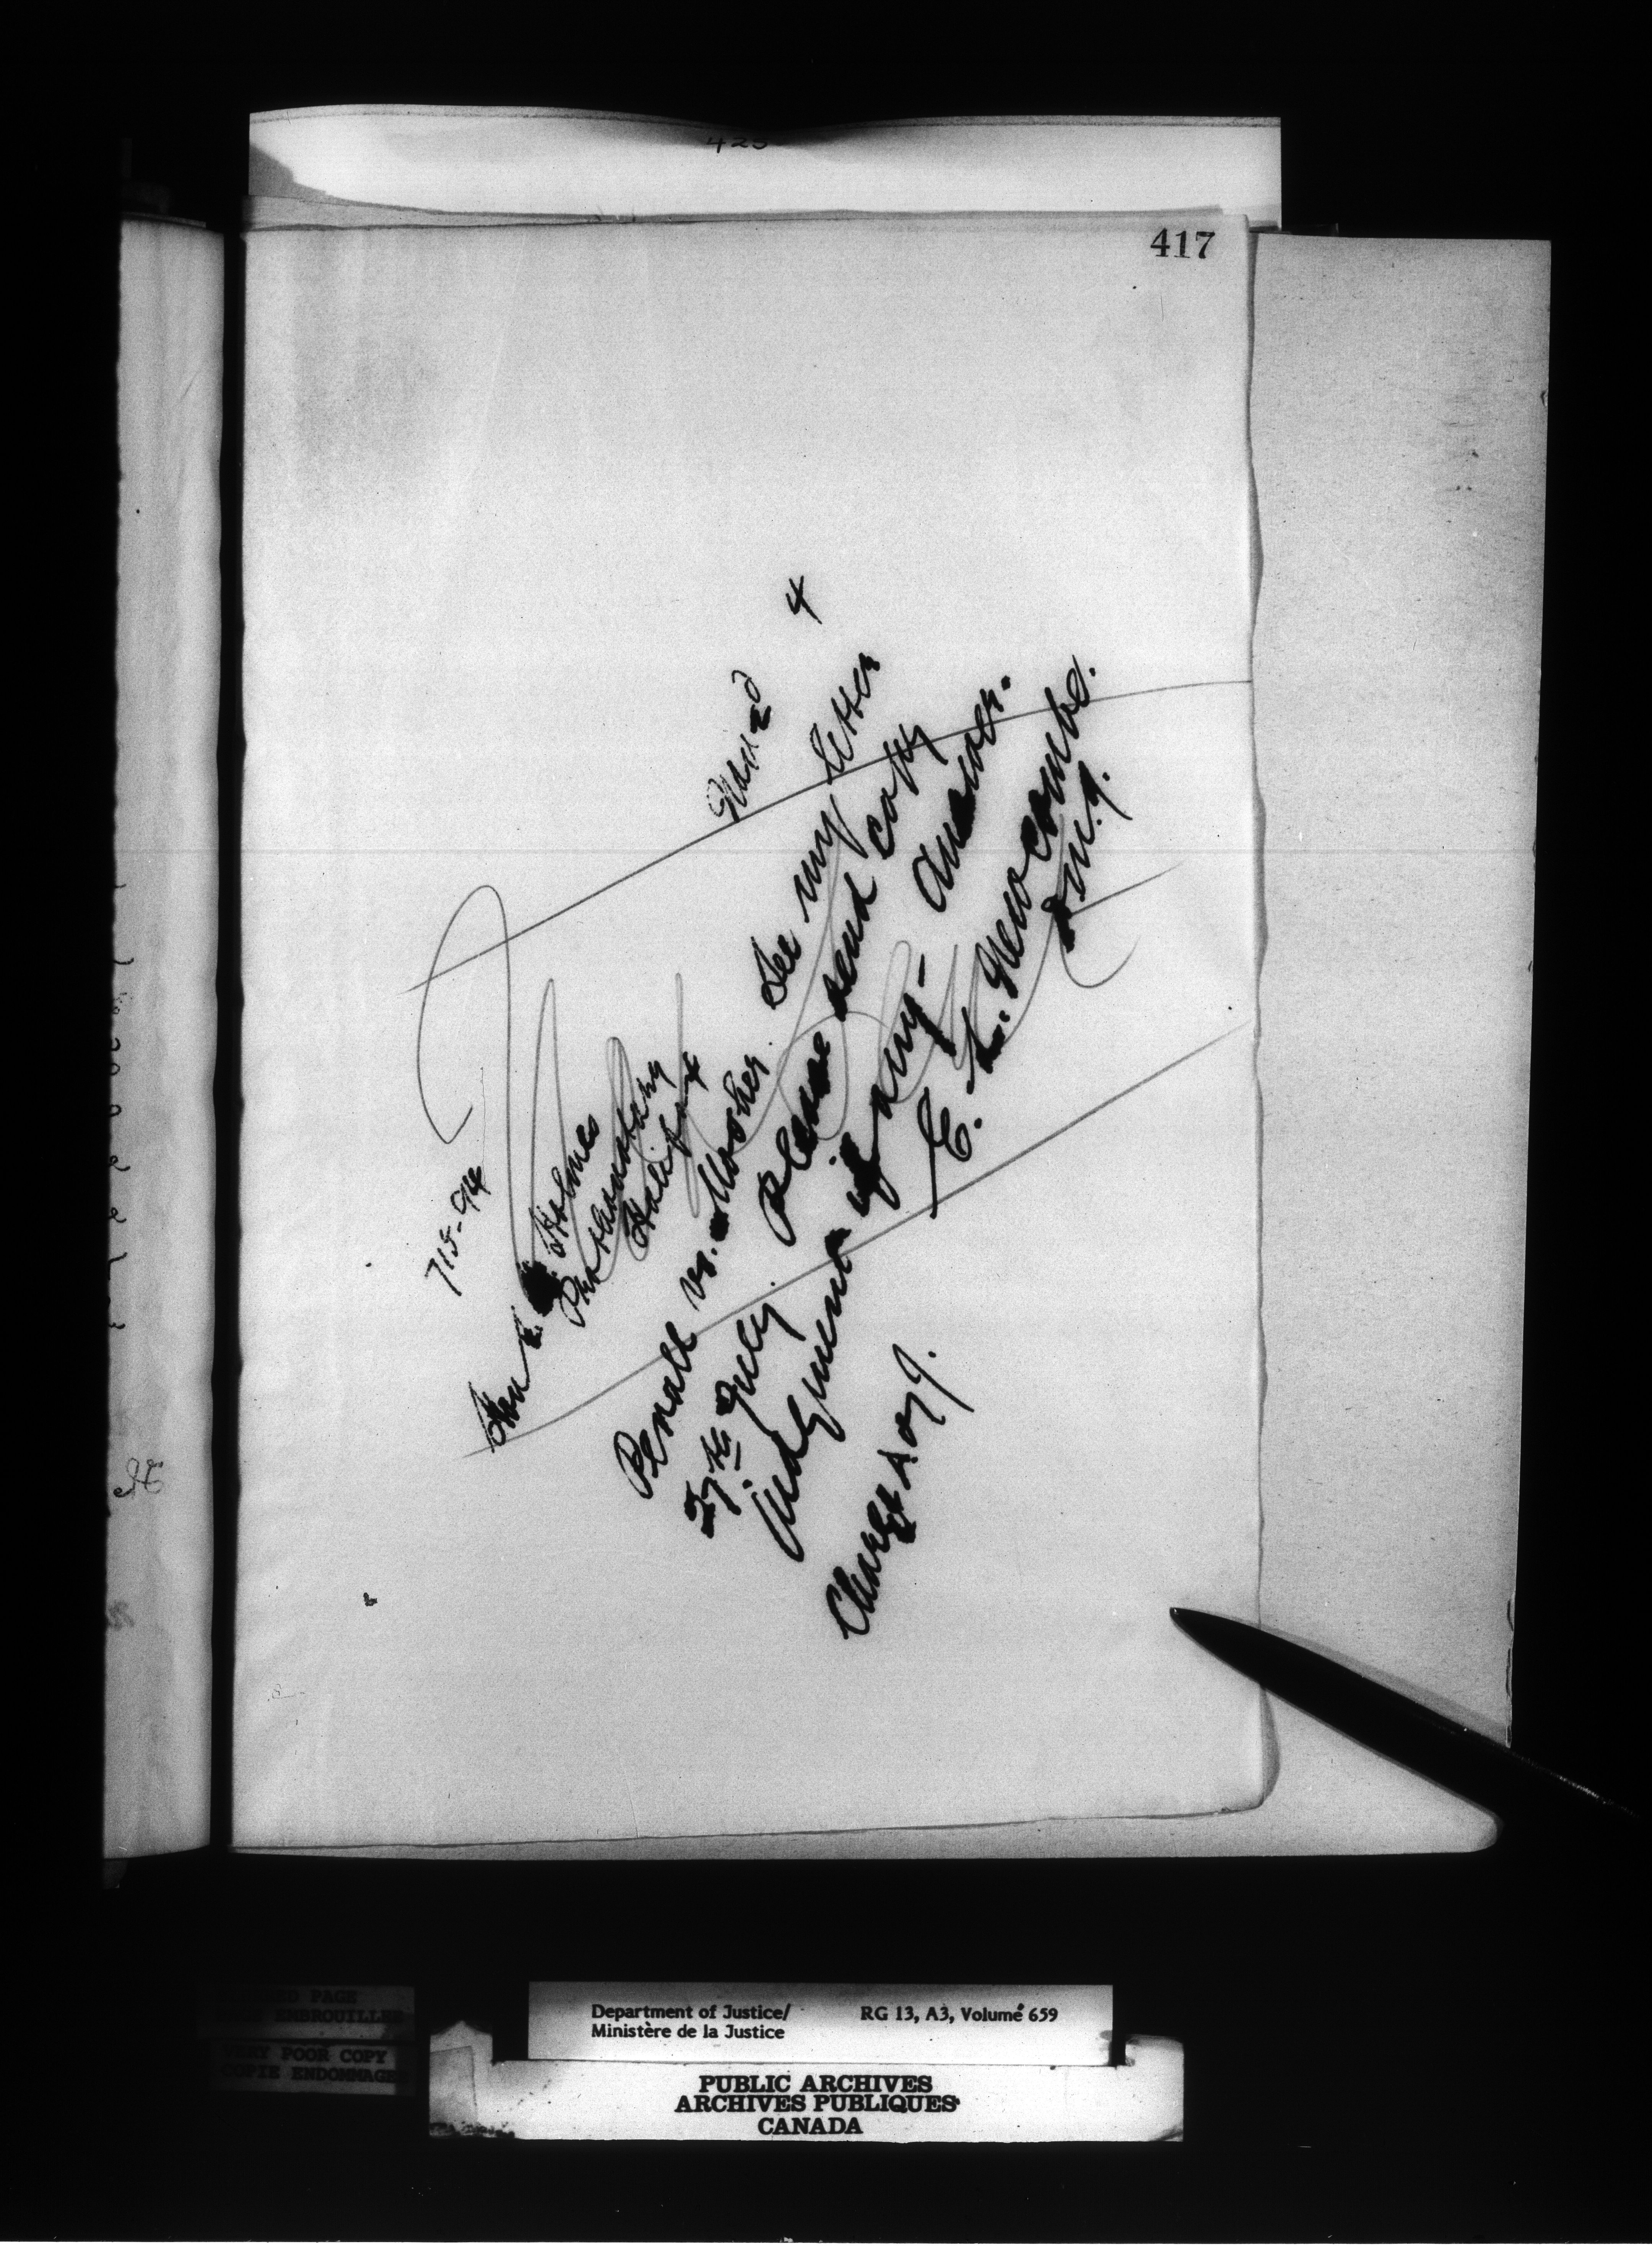 423
417
715-94
Nov 2d 4
Hon S. H. Holmes
Prothonotary
Halifax
Pernall vs. Mosher. See my letter
27th July. Please send copy
judgment if any - Answer.
E. L. Newcombe.
D.M.J.
Charge A of J.
Department of Justice/
Ministère de la Justice
RG 13, A3, Volume 659
PUBLIC ARCHIVES
ARCHIVES PUBLIQUES
CANADA
PAGE
EMBROUILLEE
VERY POOR COPY
COPIE ENDOMMAGEE